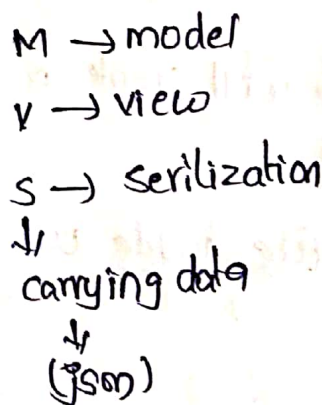 M → model
V → view
S → serilization
⇓
carrying data
⇓
(json)